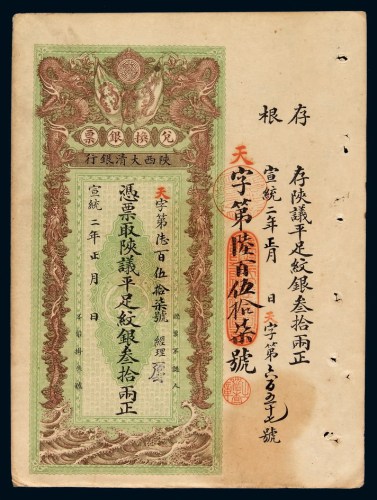 存根
存陝議平足紋銀叁拾兩正
宣統二年正月 日 天字第六百五十七號
天字第陸百伍拾柒號
兌換銀票
陝西大清銀行
天字第陸百伍拾柒號 經理
憑票取陝議平足紋銀叁拾兩正
宣統二年正月 日